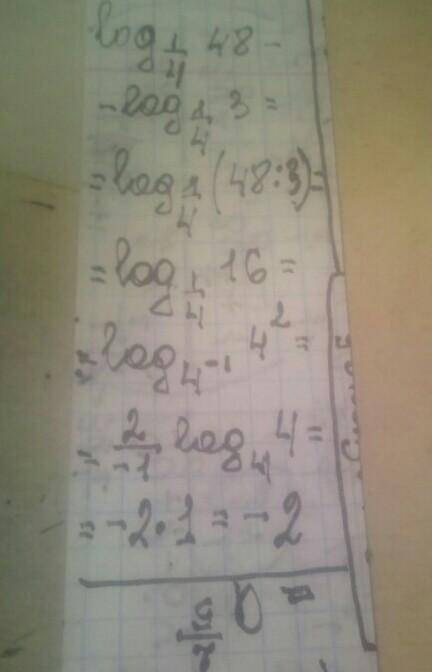 log_{1/4} 48 -
- log_{1/4} 3 =
= log_{1/4} (48:3) =
= log_{1/4} 16 =
= log_{4^{-1}} 4^2 =
= \frac{2}{-1} log_4 4 =
= -2 · 1 = -2